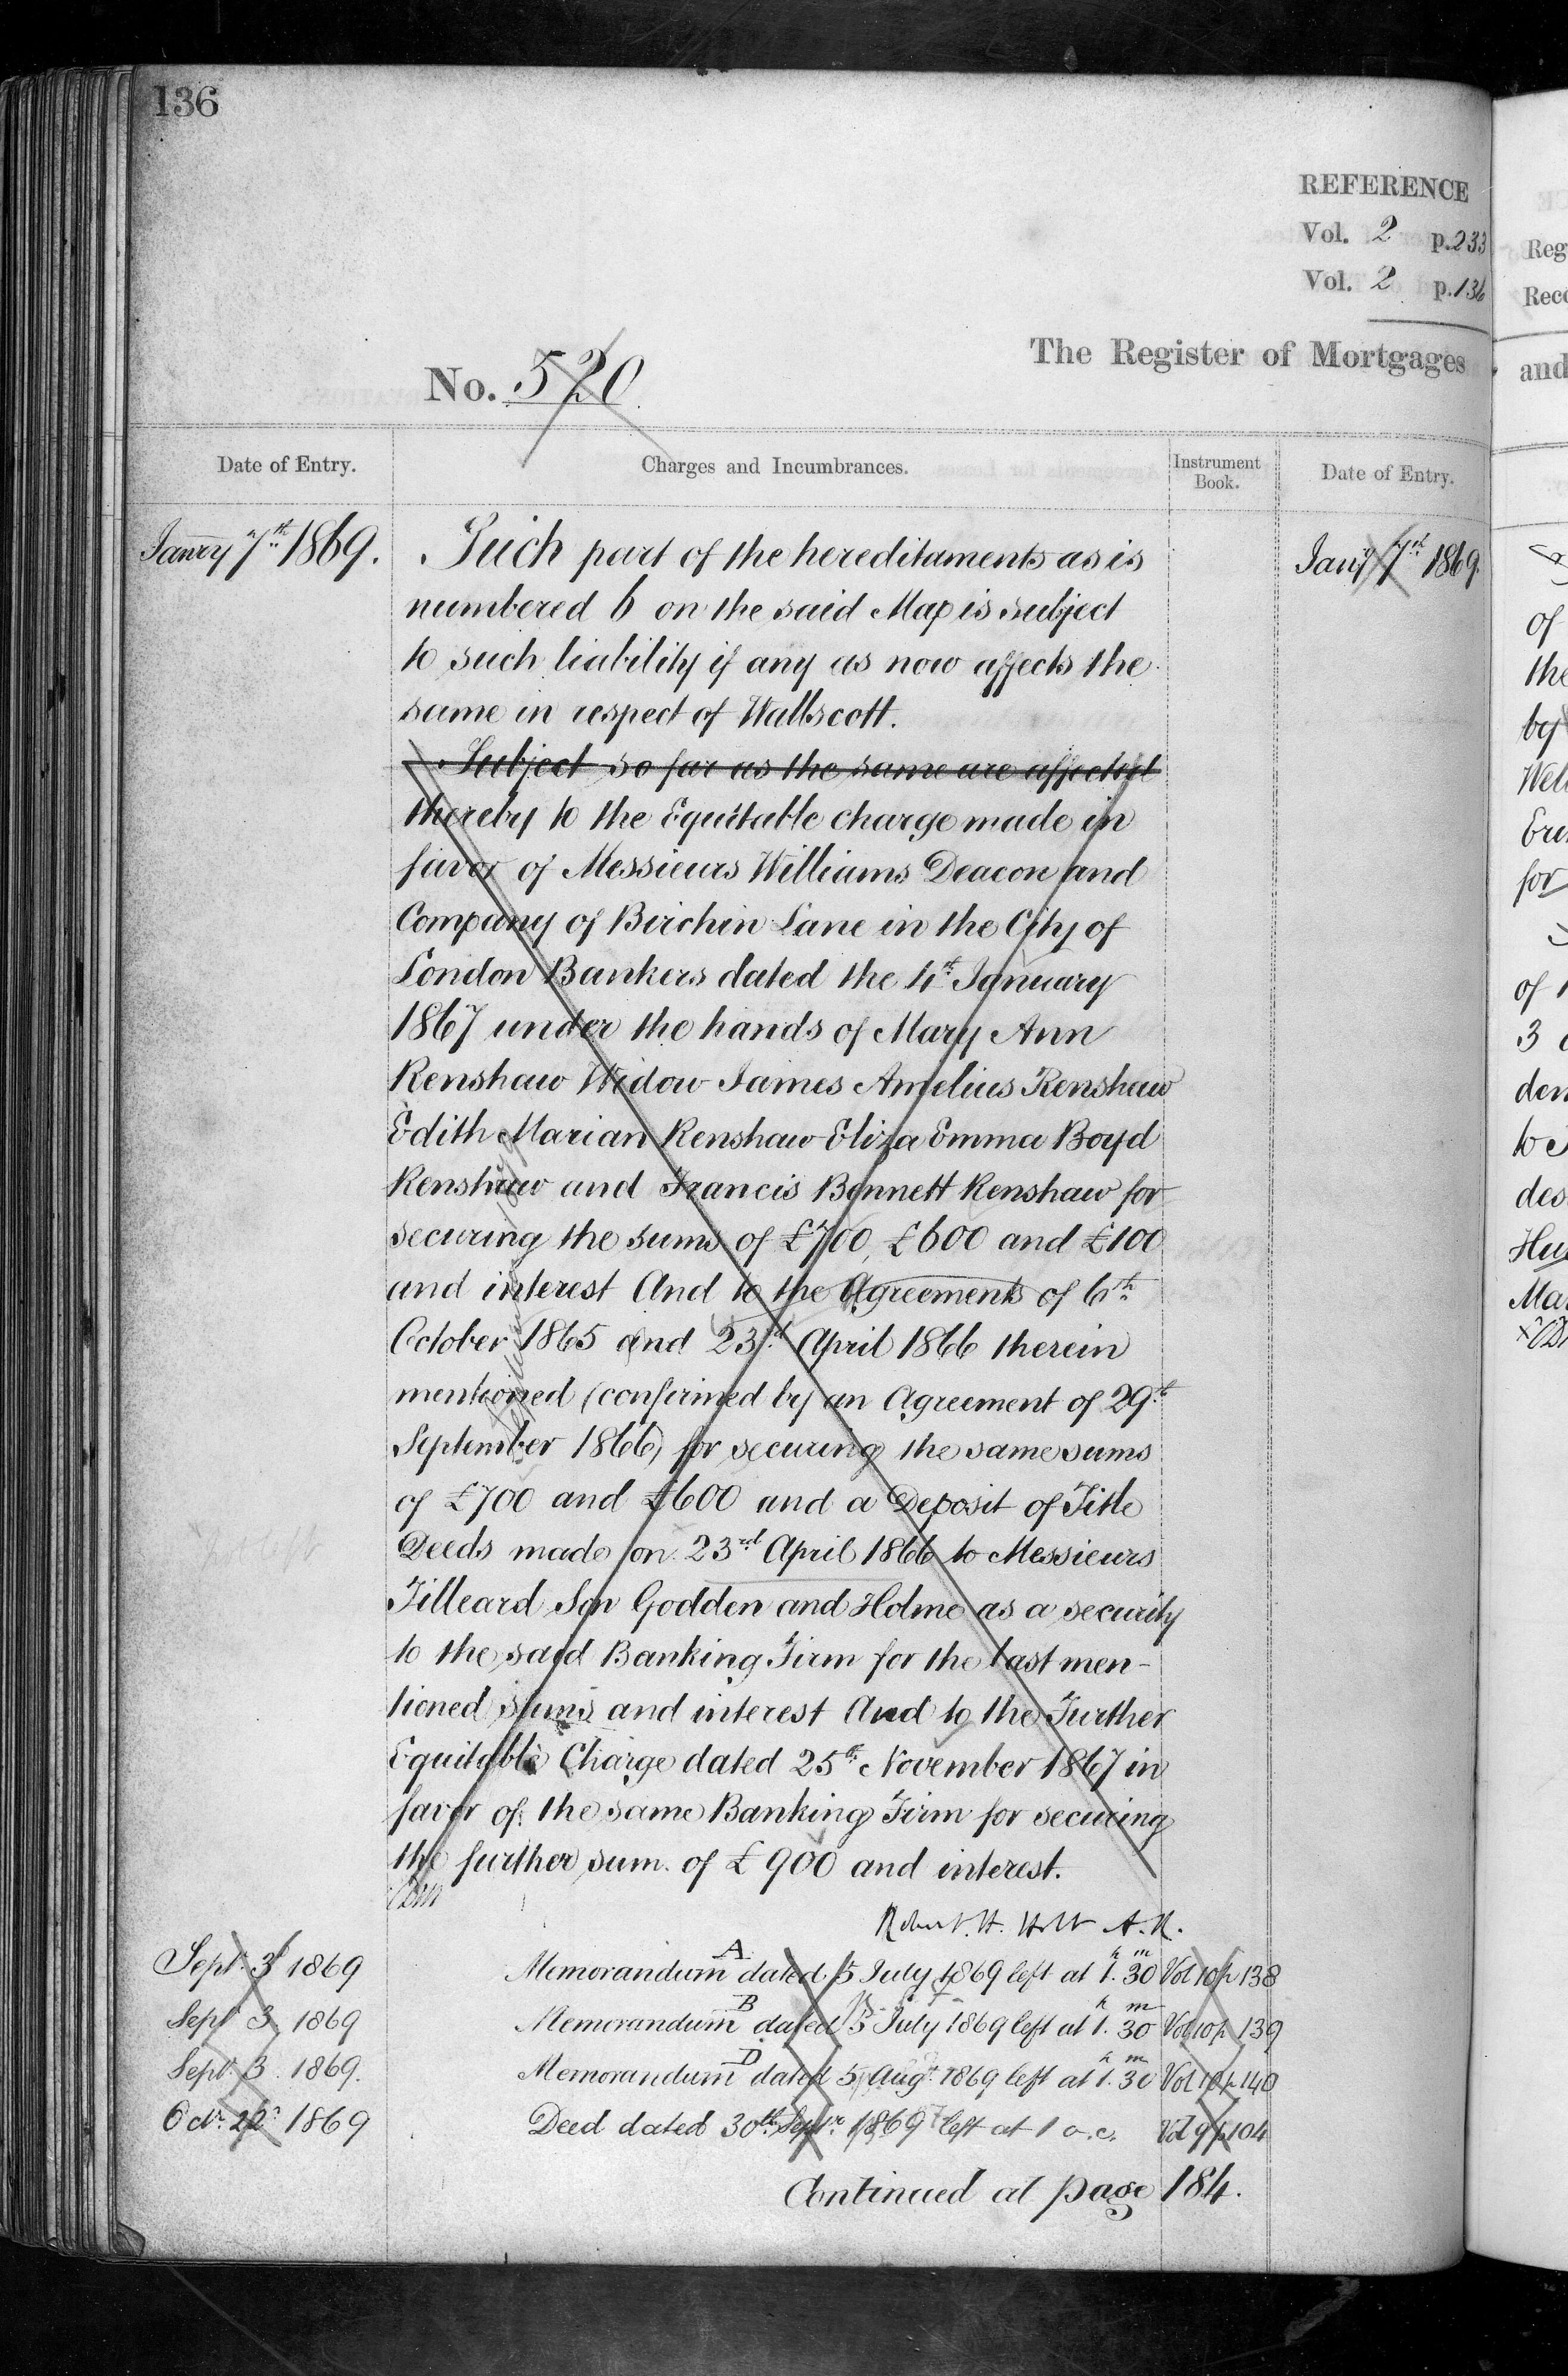 136
REFERENCE
Vol. 2 p. 233
Vol. 2 p. 136
No. 520
The Register of Mortgages
Date of Entry.
Charges and Incumbrances.
Instrument Book.
Date of Entry.
Janry 7th 1869.
Such part of the hereditaments as is
numbered 6 on the said Map is subject
to such liability if any as now affects the
same in respect of Wallscott.
Subject so far as the same are affected
thereby to the Equitable charge made in
favor of Messieurs Williams Deacon and
Company of Birchin Lane in the City of
London Bankers dated the 4th January
1867 under the hands of Mary Ann
Renshaw Widow James Amelius Renshaw
Edith Marian Renshaw Eliza Emma Boyd
Renshaw and Francis Bennett Renshaw for
securing the sums of £700, £600 and £100
and interest And to the Agreements of 6th
October 1865 and 23rd April 1866 therein
mentioned (confirmed by an Agreement of 29th
September 1866) for securing the same sums
of £700 and £600 and a Deposit of Title
Deeds made on 23rd April 1866 to Messieurs
Tilleard Son Godden and Holme as a security
to the said Banking Firm for the last men-
tioned sums and interest And to the Further
Equitable Charge dated 25th November 1867 in
favor of the same Banking Firm for securing
the further sum of £900 and interest.
Robert H. Holt A.R.
Sept. 3 1869 Memorandum A dated 5 July 1869 left at 1h. 30m Vol 10 p 138
Sept 3 1869 Memorandum B dated 5 July 1869 left at 1h. 30m Vol 10 p 139
Sept. 3. 1869. Memorandum D dated 5 Augt. 1869 left at 1h. 30m Vol 10 p 140
Octr. 22d 1869 Deed dated 30th Septr. 1869 left at 1 o.c. Vol 9 p 104
Continued at page 184.
Jany 7th 1869.
Reg
Reco
and
of
the
by
Well
for
of
3
den
to
des